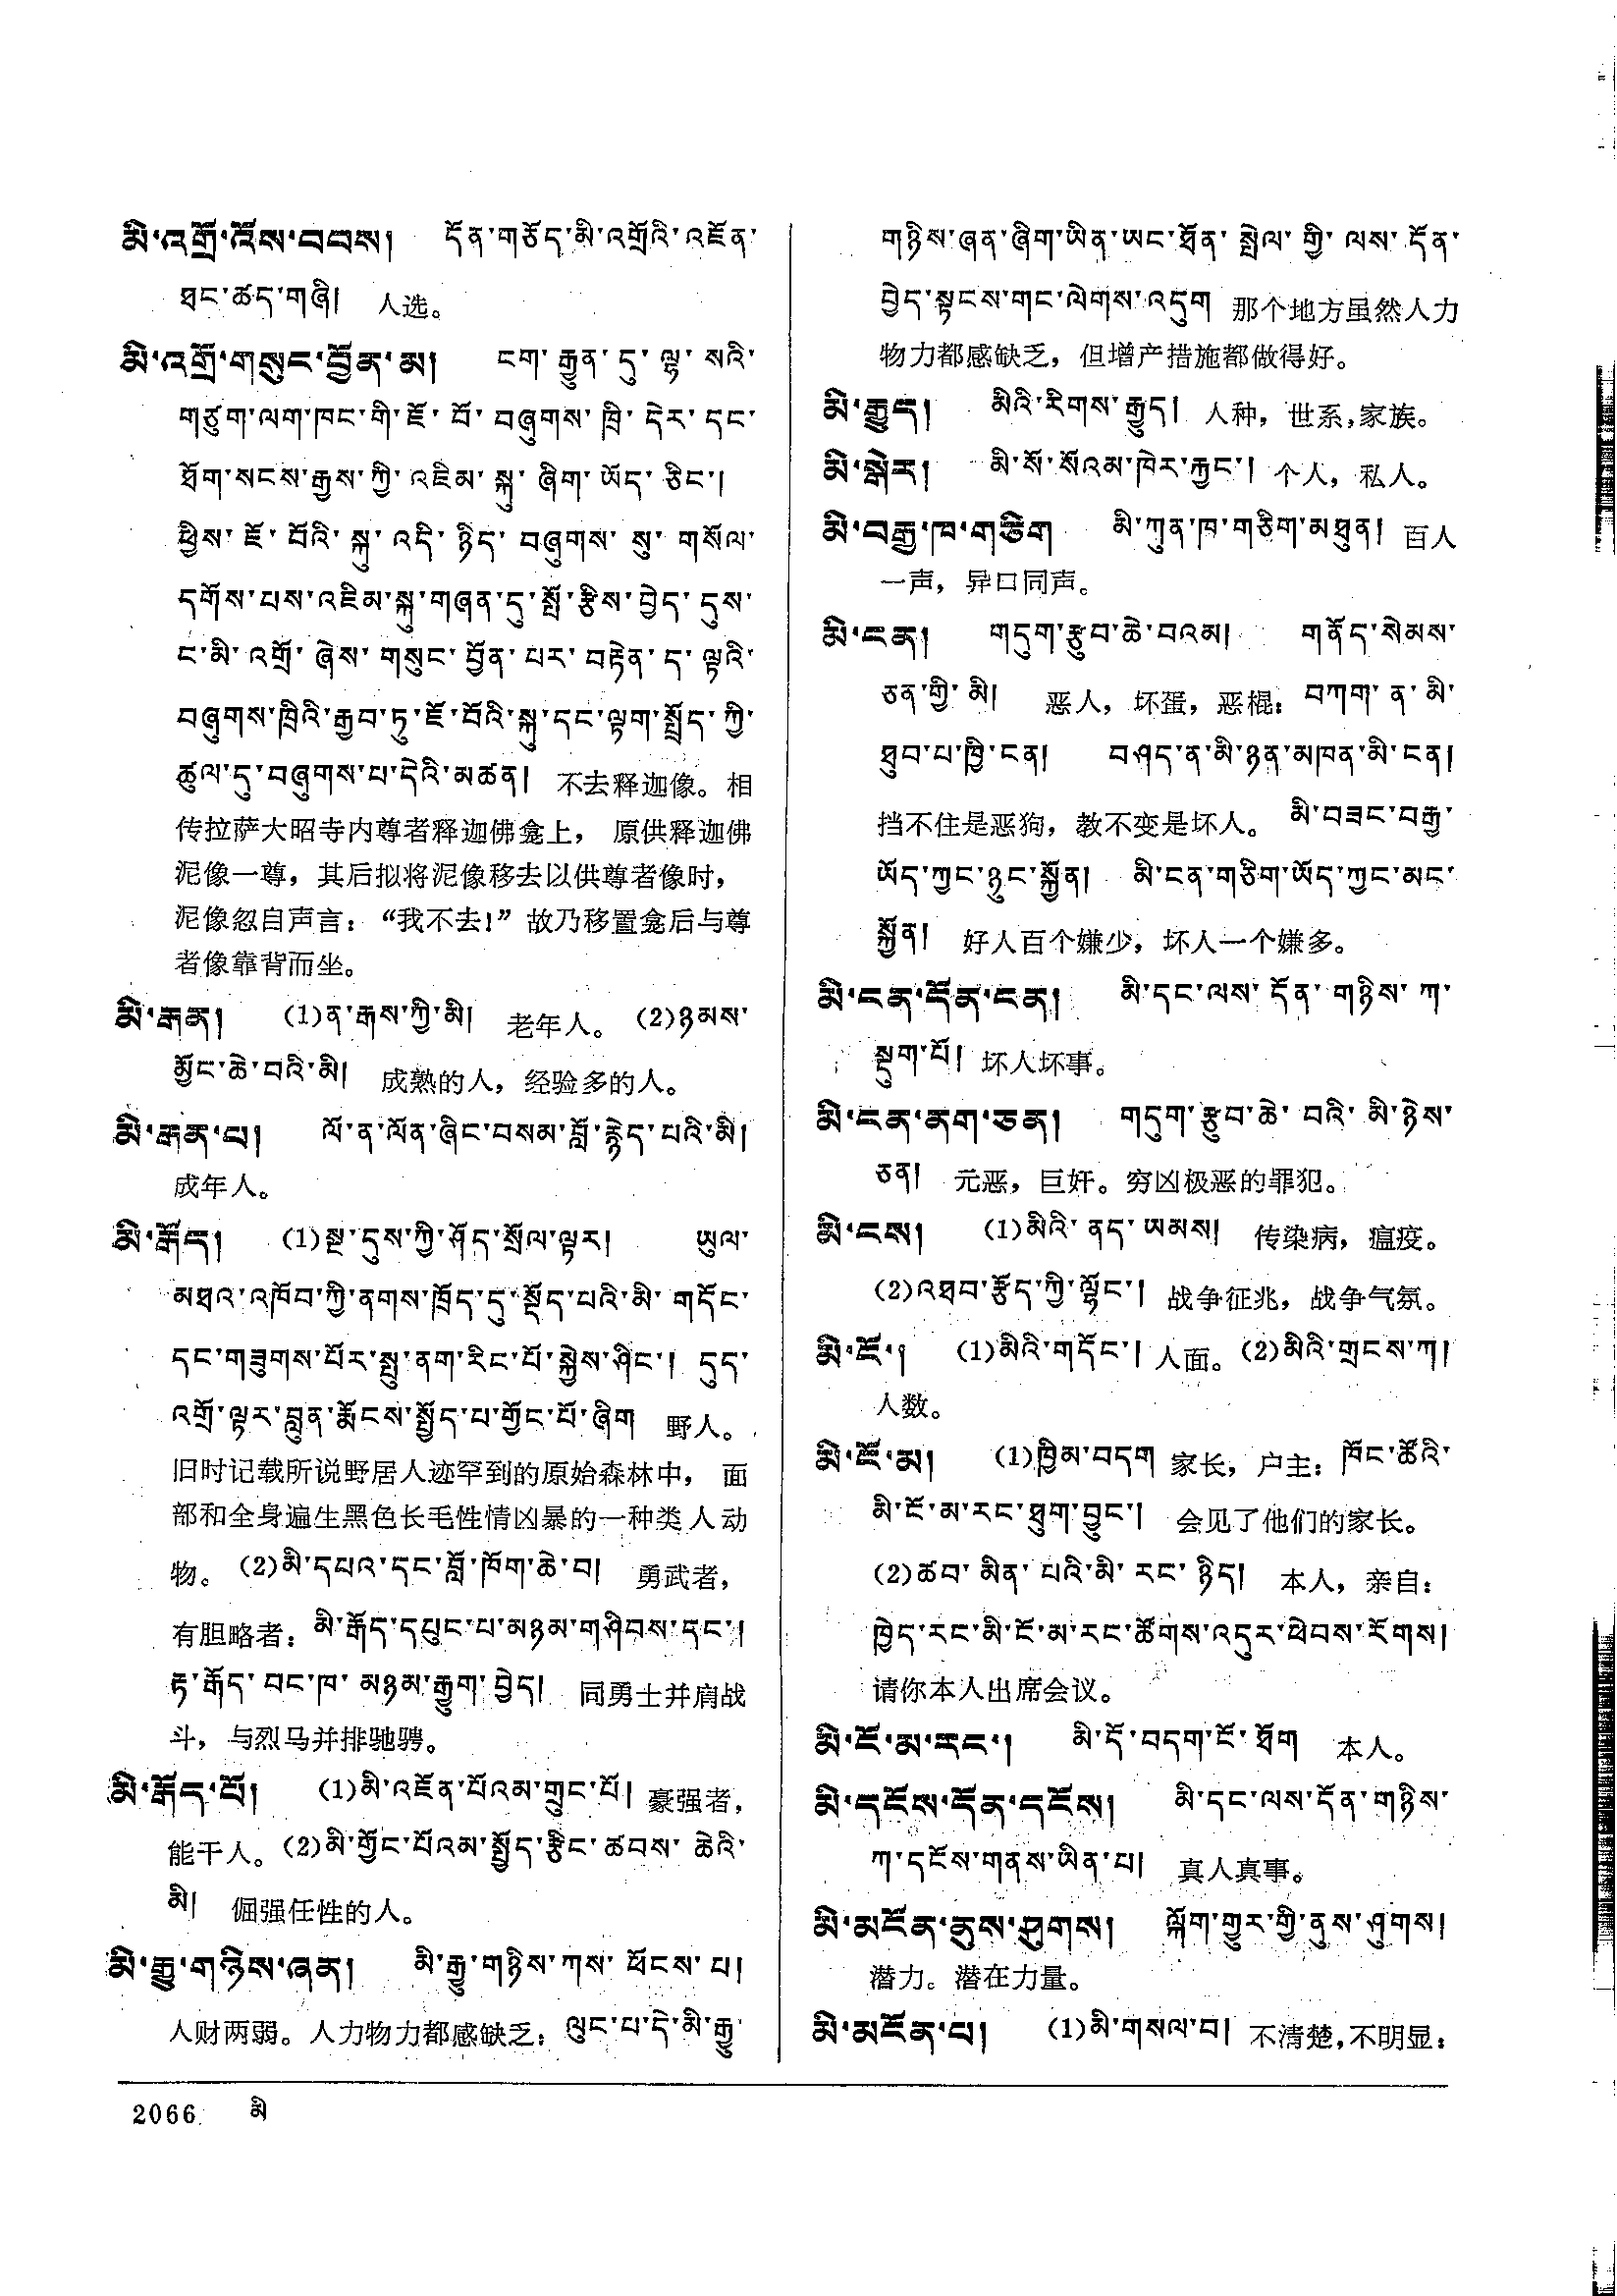 མི་འགྲོ་འོས་བབས། དོན་གཅོད་མི་འགྲོའི་འཇོན་
ཐང་ཚད་གཞི། 人选。
མི་འགྲོ་གསུང་བྱོན་མ། ངག་རྒྱུན་དུ་ལྷ་སའི་
གཙུག་ལག་ཁང་གི་ཇོ་བོ་བཞུགས་ཁྲི་དེར་དང་
ཐོག་སངས་རྒྱས་ཀྱི་འཇིམ་སྐུ་ཞིག་ཡོད་ཅིང་།
ཕྱིས་ཇོ་བོའི་སྐུ་འདི་ཉིད་བཞུགས་སུ་གསོལ་
དགོས་པས་འཇིམ་སྐུ་གཞན་དུ་སྤོ་རྩིས་བྱེད་དུས་
ང་མི་འགྲོ་ཞེས་གསུང་བྱོན་པར་བརྟེན་ད་ལྟའི་
བཞུགས་ཁྲིའི་རྒྱབ་ཏུ་ཇོ་བོའི་སྐུ་དང་ལྟག་སྤྲོད་ཀྱི་
ཚུལ་དུ་བཞུགས་པ་དེའི་མཚན། 不去释迦像。相
传拉萨大昭寺内尊者释迦佛龛上，原供释迦佛
泥像一尊，其后拟将泥像移去以供尊者像时，
泥像忽自声言：“我不去!”故乃移置龛后与尊
者像靠背而坐。
མི་རྒན། (1)ན་རྒས་ཀྱི་མི། 老年人。(2)ཉམས་
མྱོང་ཆེ་བའི་མི། 成熟的人，经验多的人。
མི་རྒན་པ། ལོ་ན་ལོན་ཞིང་བསམ་བློ་རྙེད་པའི་མི།
成年人。
མི་རྒོད། (1)སྔ་དུས་ཀྱི་ཤོད་སྲོལ་ལྟར། ཡུལ་
མཐའ་འཁོབ་ཀྱི་ནགས་ཁྲོད་དུ་སྡོད་པའི་མི་གདོང་
དང་གཟུགས་པོར་སྤུ་ནག་རིང་པོ་སྐྱེས་ཤིང་། དུད་
འགྲོ་ལྟར་བླུན་རྨོངས་སྤྱོད་པ་གྱོང་པོ་ཞིག 野人。
旧时记载所说野居人迹罕到的原始森林中，面
部和全身遍生黑色长毛性情凶暴的一种类人动
物。(2)མི་དཔའ་དང་བློ་ཁོག་ཆེ་བ། 勇武者，
有胆略者：མི་རྒོད་དཔུང་པ་མཉམ་གཤིབས་དང་།
རྟ་རྒོད་བང་ཁ་མཉམ་རྒྱུག་བྱེད། 同勇士并肩战
斗，与烈马并排驰骋。
མི་རྒོད་པོ། (1)མི་འཇོན་པོའམ་གྲུང་པོ། 豪强者，
能干人。(2)མི་གྱོང་པོའམ་སྤྱོད་རྩིང་ཚབས་ཆེའི་
མི། 倔强任性的人。
མི་རྒྱུ་གཉིས་ཞན། མི་རྒྱུ་གཉིས་ཀས་ཕོངས་པ།
人财两弱。人力物力都感缺乏：ལུང་པ་དེ་མི་རྒྱུ་
གཉིས་ཞན་ཞིག་ཡིན་ཡང་ཐོན་སྤེལ་གྱི་ལས་དོན་
བྱེད་སྟངས་གང་ལེགས་འདུག 那个地方虽然人力
物力都感缺乏，但增产措施都做得好。
མི་རྒྱུད། མིའི་རིགས་རྒྱུད། 人种，世系,家族。
མི་སྒེར། མི་སོ་སོའམ་ཁེར་རྐྱང་། 个人，私人。
མི་བརྒྱ་ཁ་གཅིག མི་ཀུན་ཁ་གཅིག་མཐུན། 百人
一声，异口同声。
མི་ངན། གདུག་རྩུབ་ཆེ་བའམ། གནོད་སེམས་
ཅན་གྱི་མི། 恶人，坏蛋，恶棍：བཀག་ན་མི་
ཐུབ་པ་ཁྱི་ངན། བཤད་ན་མི་ཉན་མཁན་མི་ངན།
挡不住是恶狗，教不变是坏人。མི་བཟང་བརྒྱ་
ཡོད་ཀྱང་ཉུང་སྐྱོན། མི་ངན་གཅིག་ཡོད་ཀྱང་མང་
སྐྱོན། 好人百个嫌少，坏人一个嫌多。
མི་ངན་དོན་ངན། མི་དང་ལས་དོན་གཉིས་ཀ་
སྡུག་པོ། 坏人坏事。
མི་ངན་ནག་ཅན། གདུག་རྩུབ་ཆེ་བའི་མི་ཉེས་
ཅན། 元恶，巨奸。穷凶极恶的罪犯。
མི་ངས། (1)མིའི་ནད་ཡམས། 传染病，瘟疫。
(2)འཐབ་རྩོད་ཀྱི་ལྷོང་། 战争征兆，战争气氛。
མི་ངོ་། (1)མིའི་གདོང་། 人面。(2)མིའི་གྲངས་ཀ།
人数。
མི་ངོ་མ། (1)ཁྱིམ་བདག 家长，户主：ཁོང་ཚོའི་
མི་ངོ་མ་རང་ཐུག་བྱུང་། 会见了他们的家长。
(2)ཚབ་མིན་པའི་མི་རང་ཉིད། 本人，亲自：
ཁྱེད་རང་མི་ངོ་མ་རང་ཚོགས་འདུར་ཕེབས་རོགས།
请你本人出席会议。
མི་ངོ་མ་རང་། མི་དོ་བདག་ངོ་ཐོག 本人。
མི་དངོས་དོན་དངོས། མི་དང་ལས་དོན་གཉིས་
ཀ་དངོས་གནས་ཡིན་པ། 真人真事。
མི་མངོན་ནུས་ཤུགས། ལྐོག་གྱུར་གྱི་ནུས་ཤུགས།
潜力。潜在力量。
མི་མངོན་པ། (1)མི་གསལ་བ། 不清楚,不明显：
2066 མི